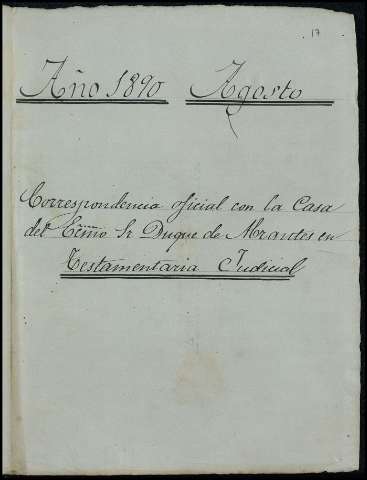 17
Año 1890 Agosto
Correspondencia oficial con la Casa
del Ecmo Sr Duque de Abrantes en
Testamentaria Judicial